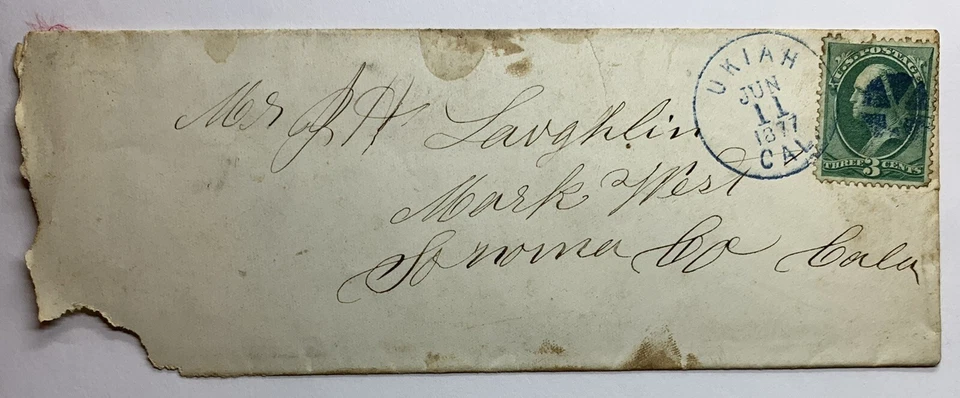 UKIAH
JUN
11
1877
CAL
U.S. POSTAGE
THREE 3 CENTS
Mr J H Laughlin
Mark West
Sonoma Co Cala